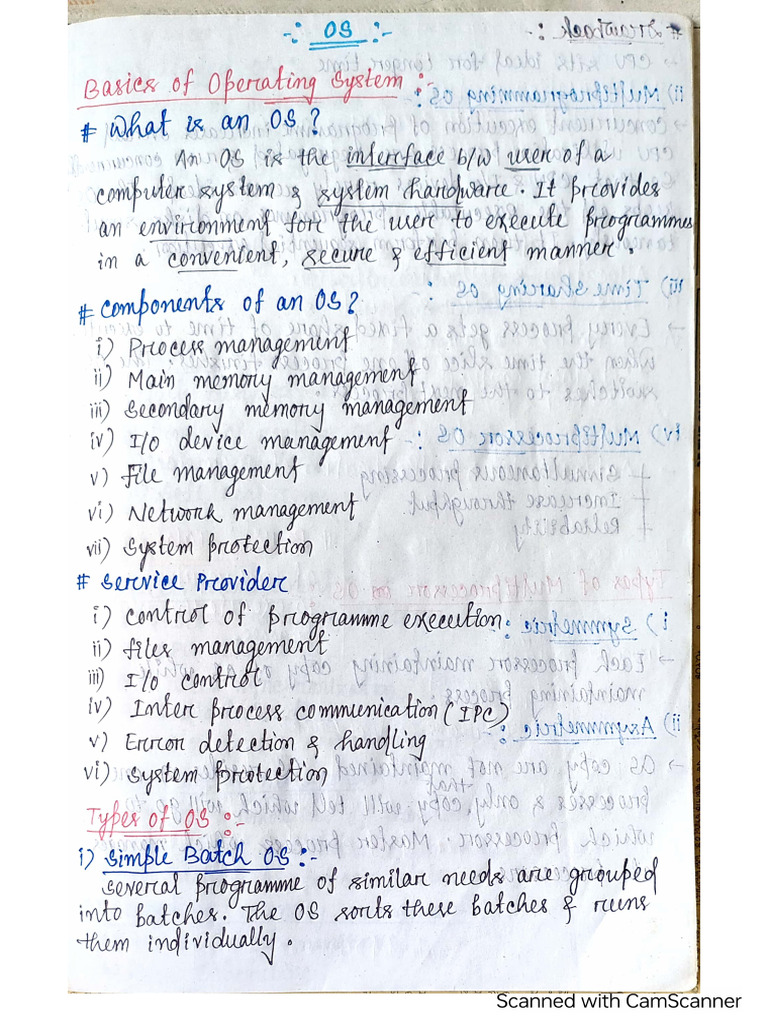 -: OS :-
Basics of Operating System :-
# What is an OS?
An OS is the interface b/w user of a
computer system & system hardware. It provides
an environment for the user to execute programmes
in a convenient, secure & efficient manner.
# Components of an OS?
i) Process management
ii) Main memory management
iii) Secondary memory management
iv) I/O device management
v) File management
vi) Network management
vii) System protection
# Service Provider
i) Control of programme execution
ii) Files management
iii) I/O control
iv) Inter process communication (IPC)
v) Error detection & handling
vi) System protection
Types of OS :-
i) Simple Batch OS :-
Several programme of similar needs are grouped
into batches. The OS sorts these batches & runs
them individually.
Scanned with CamScanner